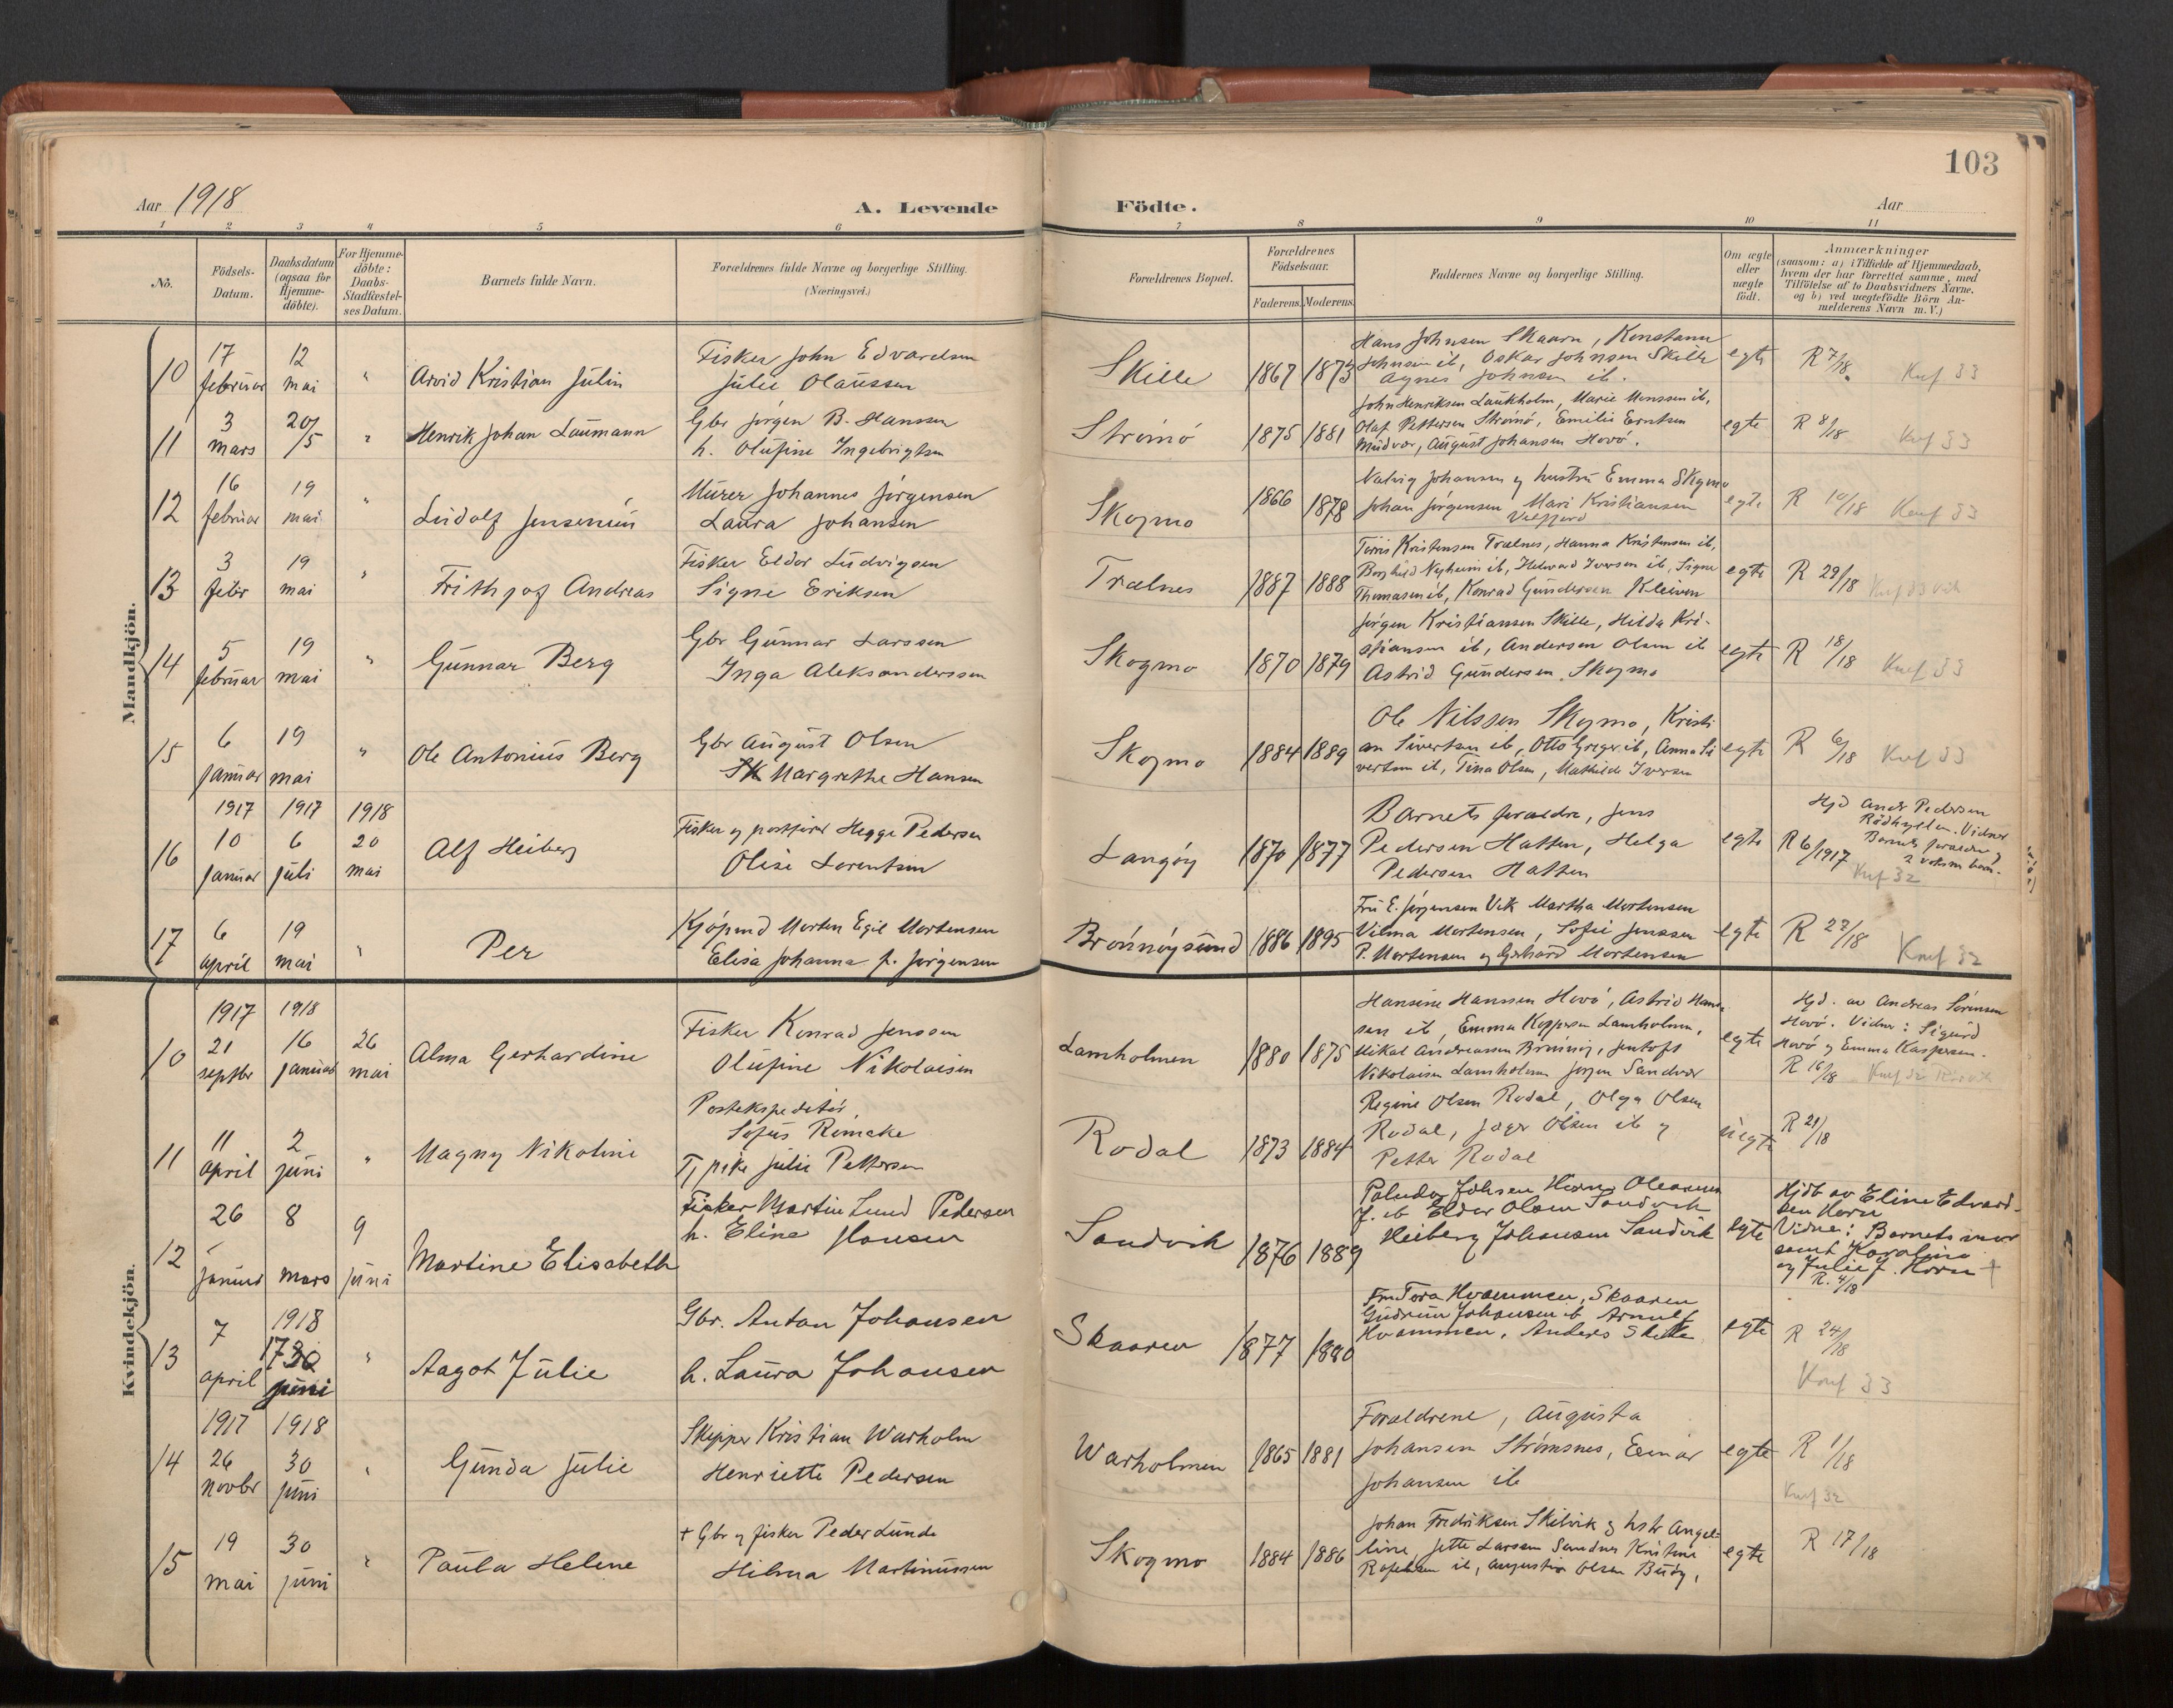 103
Aar 1918
A. Levende Födte.
Aar
1 2 3 4 5 6 7 8 9 10 11
No.
Födsels-Datum.
Daabsdatum (ogsaa for Hjemme-döbte).
For Hjemme-döbte: Daabs-Stadfæstel-ses Datum.
Barnets fulde Navn.
Forældrenes fulde Navne og borgerlige Stilling.
(Næringsvei.)
Forældrenes Bopæl.
Forældrenes Födselsaar.
Faderens. Moderens.
Faddernes Navne og borgerlige Stilling.
Om ægte eller uægte födt.
Anmærkninger
(saasom: a) i Tilfælde af Hjemmedaab,
hvem der har forrettet samme, med
Tilföielse af to Daabsvidners Navne.
og b) ved uægtefödte Börn An-
melderens Navn m. V.)
Mandkjön.
10 17 februar 12 mai " Arvid Kristian Julin
Fisker John Edvardsen
Julie Olaussen
Skille 1867 1873
Hans Johnsen Skaarn, Konstanse
Johnsen ib, Oskar Johnsen Skille
Agnes Johnsen ib.
egte R 7/18. Knf 33
11 3 mars 20/5 " Henrik Johan Laumann
Gbr Jørgen B. Hanssen
h. Olufine Ingebrigtsen
Strømö 1875 1881
John Henriksen Laukholm, Marie Monssen ib,
Olaf Pettersen Strömö, Emilie Erntsen
Mudvær, August Johansen Hovö.
egte R 8/18 Knf 33
12 16 februar 19 mai " Ludolf Jensenius
Murer Johannes Jørgensen
Laura Johansen
Skogmo 1866 1878
Nalvig Johansen og hustru Emma Skogmo
Johan Jørgensen Mari Kristiansen
Velfjord
egte R 10/18 Knf 33
13 3 febr 19 mai " Frithjof Andreas
Fisker Eldor Ludvigsen
Signe Eriksen
Trælnes 1887 1888
Kristensen Trælnes, Hanna Kristensen ib,
Borghild Nyheim ib, Iversen ib, Signe
Thomasen ib, Konrad Gundersen Kleiven
egte R 29/18 Knf 33
14 5 februar 19 mai " Gunnar Berg
Gbr Gunnar Larssen
Inga Aleksanderssen
Skogmo 1870 1879
Jørgen Kristiansen Skille, Hilda Kri-
stiansen ib, Andersen Olsen ib
Astrid Gundersen Skogmo
egte R 18/18 Knf 33
15 6 januar 19 mai " Ole Antonius Berg
Gbr August Olsen
Margrethe Hansen
Skogmo 1884 1889
Ole Nilssen Skogmo, Kristi
an Sivertsen ib, Otto Greger ib, Anna Si
vertsen ib, Tina Olsen, Mathilde Iversen
egte R 6/18 Knf 33
16 1917 10 januar 1917 6 juli 1918 20 mai Alf Heiberg
Fisker og postfører Hegge Pedersen
Olise Lorentsen
Langöy 1870 1877
Barnets foraldre, Jens
Pedersen Hatten, Helga
Pedersen Hatten
egte R 6/1917
Hjd Andr Pedersen
Rödhyllen. Vidner
Barnets foraldre og
2 voksne barn.
Knf 32
17 6 april 19 mai " Per
Kjöpmd Morten Egil Mortensen
Elisa Johanna f. Jørgensen
Brönnöysund 1886 1895
Fru E. Jørgensen Vik Martha Mortensen
Vilma Mortensen, Sofie Jenssen
P. Mortensen og Gerhard Mortensen
egte R 22/18 Knf 32
Kvindekjön.
10 1917 21 septbr 1918 16 januar 26 mai Alma Gerhardine
Fisker Konrad Jenssen
Olufine Nikolaisen
Lamholmen 1880 1875
Hansine Hanssen Hovö, Astrid Hans-
sen ib, Emma Keppersen Lamholmen,
Mikal Andreassen Jentoft
Nikolaisen Lamholmen Jørgen Sandvær
egte
Hjd. av Andreas Sörensen
Hovö. Vidner: Sigurd
Hovö og Emma Kaspersen.
R 16/18 Knf 32
11 11 april 2 juni " Magny Nikoline
Postekspeditör,
Sofus Remeke
Tj pike Julie Pettersen
Rodal 1873 1884
Regine Olsen Rodal, Olga Olsen
Rodal, Olsen ib og
Petter Rodal
uegte R 21/18
12 26 januar 8 mars 9 juni Martine Elisabeth
Fisker Martin Lund Pedersen
h. Eline Hansen
Sandvik 1876 1889
Johsen Horn Oleanna
J. ib Eldar Olsen Sandvik
Heiberg Johansen Sandvik
egte
Hjdb av Eline Edvard-
sen Horn
Vidne: Barnets mor
samt Karoline
og Julie J. Horn +
R. 4/18
13 7 april 1918 30 juni " Aagot Julie
Gbr. Anton Johansen
h. Laura Johansen
Skaaren 1877 1880
Fru Tora Hvammen, Skaaren
Gudrun Johansen ib Arnulf
Hvammen, Anders Skille
egte R 24/18
Knf 33
14 1917 26 novbr 1918 30 juni " Gunda Julie
Skipper Kristian Warholm
Henriette Pedersen
Warholmen 1865 1881
Foraldrene, Augusta
Johansen Strömsnes, Einar
Johansen ib
egte R 1/18
Knf 32
15 19 mai 30 juni " Paula Helene
+ Gbr og fisker Peder Lunde
Hilma Martinussen
Skogmo 1884 1886
Johan Fredriksen Skilvik og hstr Angel-
line, Jette Larsen Sandnes Kristine
ib, Olsen
egte R 17/18